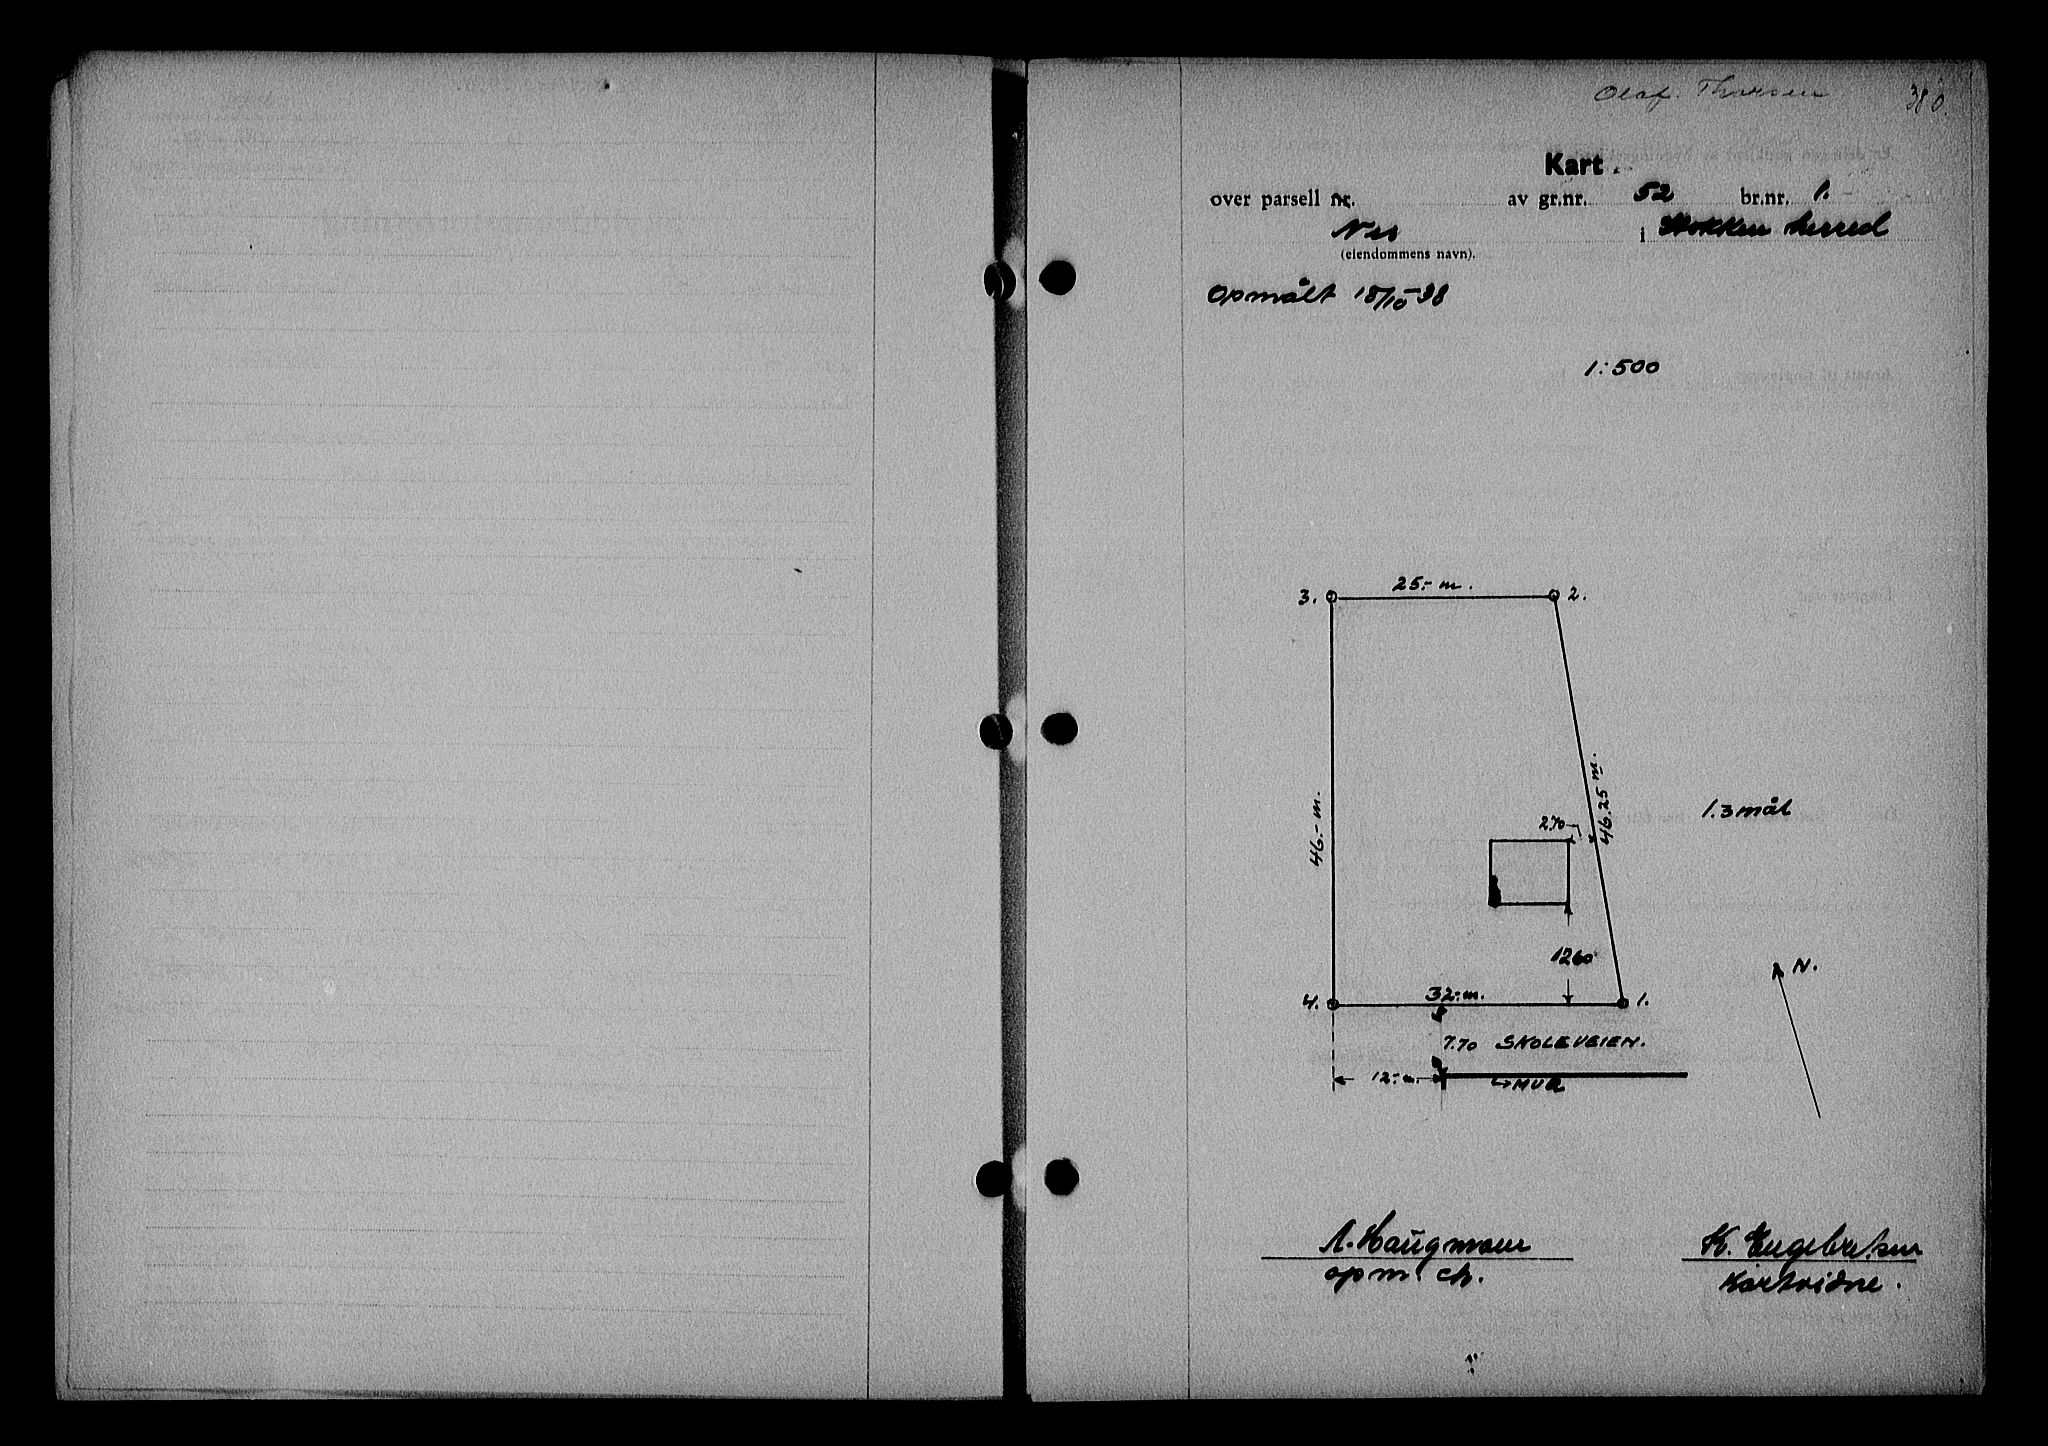 Olaf. Thorsen 380.
Kart.
over parsell nr. av gr.nr. 52 br.nr. 1.
Nes i Stokken herred
(eiendommens navn).
Opmålt 18/10-38
1:500
3. 25.- m. 2.
46.- m.
46.25 m.
2.70
1.3 mål
1260
N.
4. 32.- m. 1.
7.70 SKOLEVEIEN.
12.- m. MUR
A. Haugmoen K. Engebretsen
opm. ch. Kartvidne.